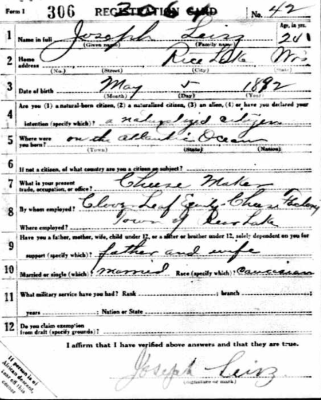 Form 1 306 REGISTRATION CARD No. 42
Age, in yrs.
1 Name in full Joseph Leirz 24
(Given name) (Family name)
2 Home address Rice Lake Wis
(No.) (Street) (City) (State)
3 Date of birth May 5 1892
(Month) (Day) (Year)
4 Are you (1) a natural-born citizen, (2) a naturalized citizen, (3) an alien, (4) or have you declared your
intention (specify which)? a naturalized citizen
5 Where were you born? on the atlantic Ocean
(Town) (State) (Nation)
6 If not a citizen, of what country are you a citizen or subject?
7 What is your present trade, occupation, or office? Cheese Maker
8 By whom employed? Clover Leaf Cheese Factory
Where employed? Town of Lake
9 Have you a father, mother, wife, child under 12, or a sister or brother under 12, solely dependent on you for
support (specify which)? father and wife
10 Married or single (which)? married Race (specify which)? Caucasian
11 What military service have you had? Rank ; branch
years ; Nation or State
12 Do you claim exemption from draft (specify grounds)?
I affirm that I have verified above answers and that they are true.
Joseph Leirz
(Signature or mark)
If person is of African descent, tear off this corner